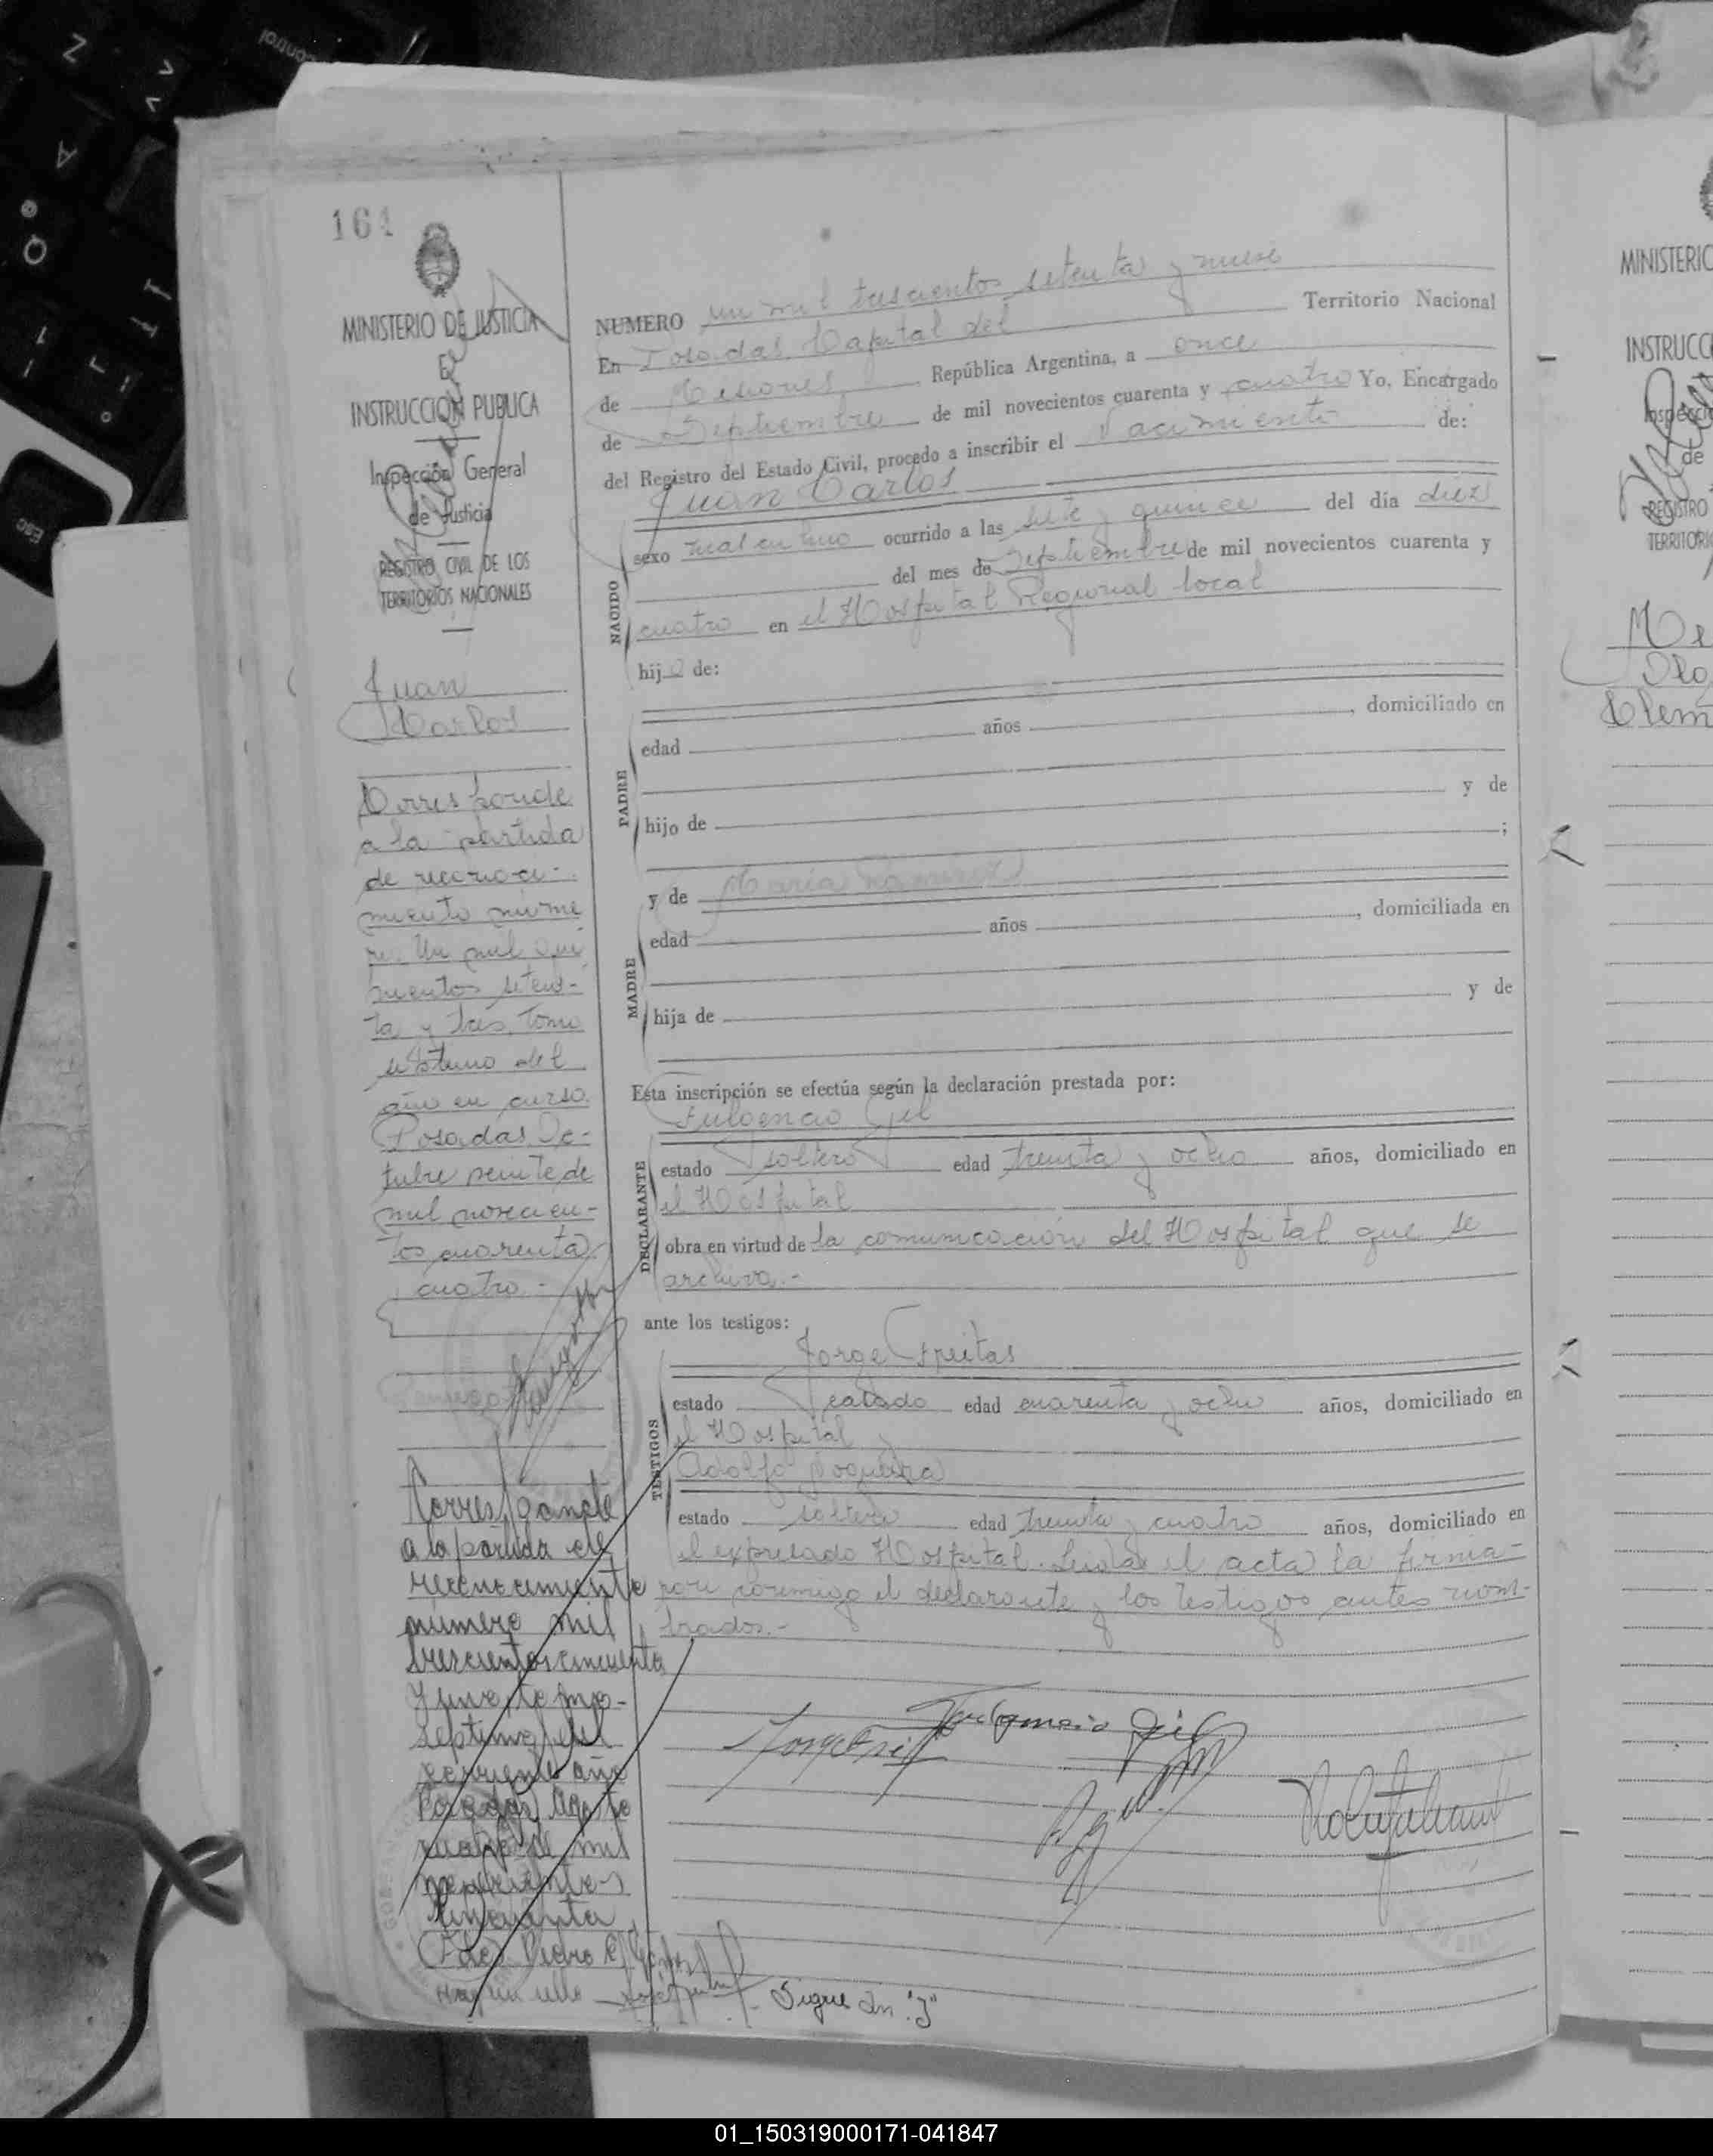 164
MINISTERIO DE JUSTICIA
E
INSTRUCCION PUBLICA
Inspección General
de Justicia
REGISTRO CIVIL DE LOS
TERRITORIOS NACIONALES
Juan
Carlos
Corresponde
a la partida
de reconoci-
miento núme
ro Un mil qui
nientos seten-
ta y tres, Tomo
septimo del
año en curso.
Posadas, Oc-
tubre veinte de
mil novecien-
tos cuarenta y
cuatro.-
Corresponde
a la partida de
reconocimiento
número mil
trescientos cincuenta
y nueve, tomo
septimo del
corriente año
Posadas Agosto
de mil
novecientos
cincuenta
Fdo. Pedro
Hay un sello
NUMERO un mil trescientos setenta y nueve
En Posadas Capital del Territorio Nacional
de Misiones República Argentina, a once
de Septiembre de mil novecientos cuarenta y cuatro Yo, Encargado
del Registro del Estado Civil, procedo a inscribir el Nacimiento de:
Juan Carlos
NACIDO
sexo masculino ocurrido a las siete y quince del día diez
del mes de Septiembre de mil novecientos cuarenta y
cuatro en el Hospital Regional local
hijo de:
PADRE
edad años , domiciliado en
hijo de y de
;
y de María Ramirez
MADRE
edad años , domiciliada en
hija de y de
Esta inscripción se efectúa según la declaración prestada por:
Fulgencio Gil
DECLARANTE
estado soltero edad treinta y ocho años, domiciliado en
el Hospital
obra en virtud de la comunicación del Hospital que se
archiva.-
ante los testigos:
Jorge Freitas
TESTIGOS
estado casado edad cuarenta y ocho años, domiciliado en
el Hospital y
Adolfo Nogueira
estado soltero edad treinta y cuatro años, domiciliado en
el expresado Hospital. Leída el acta la firma-
ron conmigo el declarante y los testigos antes nom-
brados.-
Fulgencio Gil
Sigue en "J"
MINISTERIO
INSTRUCC
Inspecció
de
REGISTRO
TERRITORI
01_150319000171-041847